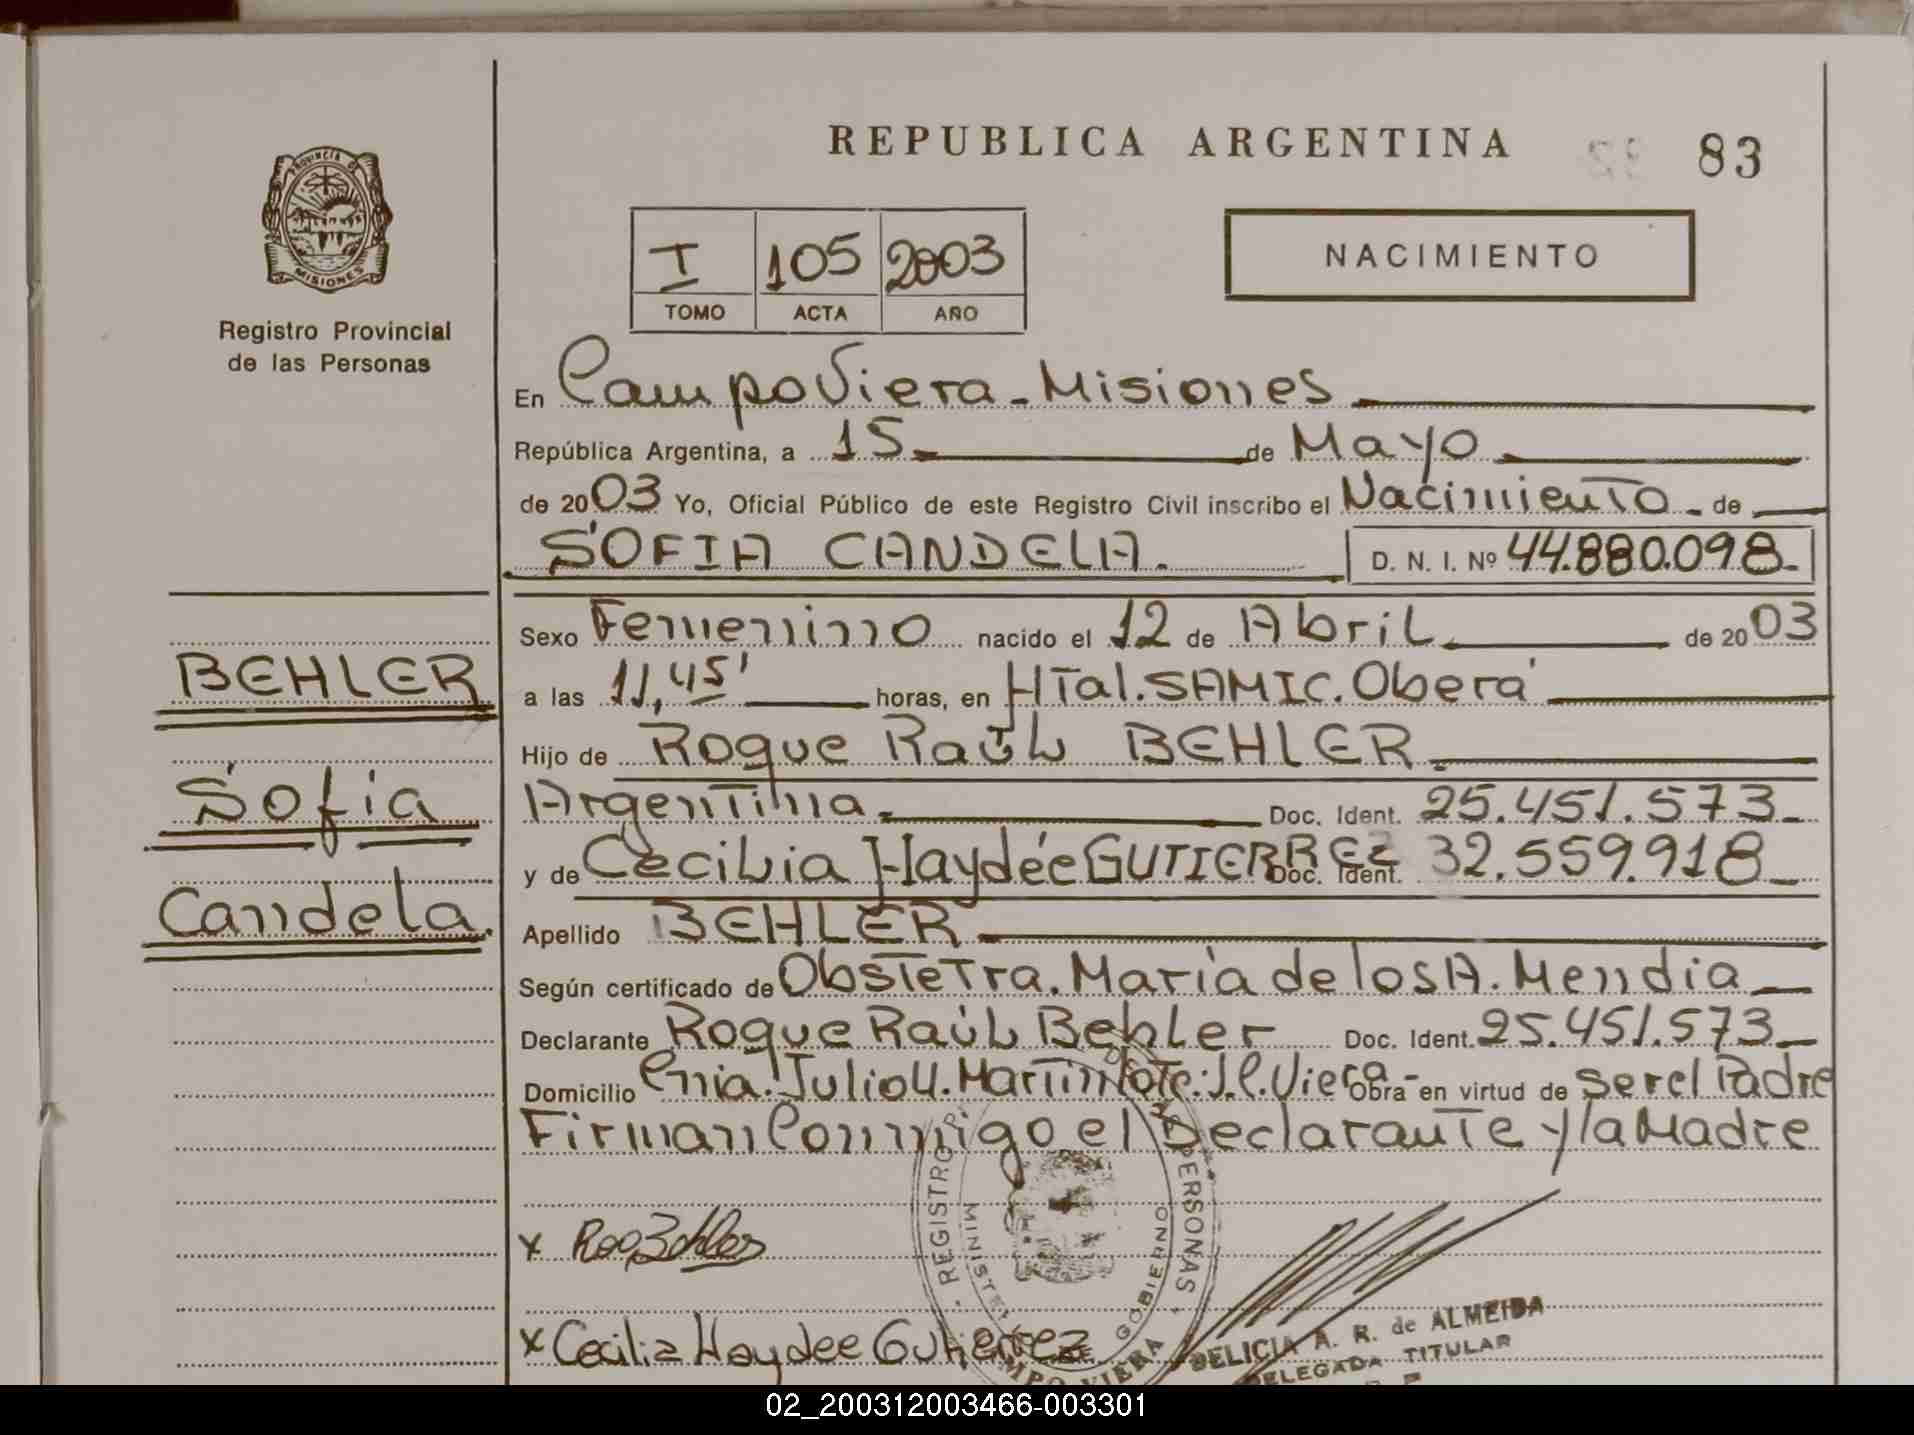 REPUBLICA ARGENTINA
83
PROVINCIA DE
MISIONES
Registro Provincial
de las Personas
I 105 2003
TOMO ACTA AÑO
NACIMIENTO
En Campo Viera - Misiones
República Argentina, a 15 de Mayo
de 2003 Yo, Oficial Público de este Registro Civil inscribo el Nacimiento - de
SOFIA CANDELA. D. N. I. Nº 44.880.098-
BEHLER
Sofia
Candela.
Sexo Femenino nacido el 12 de Abril de 2003
a las 11,45' horas, en HTal. SAMIC. Oberá
Hijo de Roque Raúl BEHLER.
Argentina Doc. Ident. 25.451.573-
y de Cecilia Haydée GUTIERREZ Doc. Ident. 32.559.918-
Apellido BEHLER
Según certificado de Obstetra. María de los A. Mendia
Declarante Roque Raúl Behler Doc. Ident. 25.451.573-
Domicilio Julio U. Martin C. Viera - Obra en virtud de ser el Padre
Firman Conmigo el Declarante y la Madre
REGISTRO PERSONAS
GOBIERNO
VIERA
x
x Cecilia Haydee Gutierrez
DELICIA A. R. de ALMEIDA
DELEGADA TITULAR
02_200312003466-003301